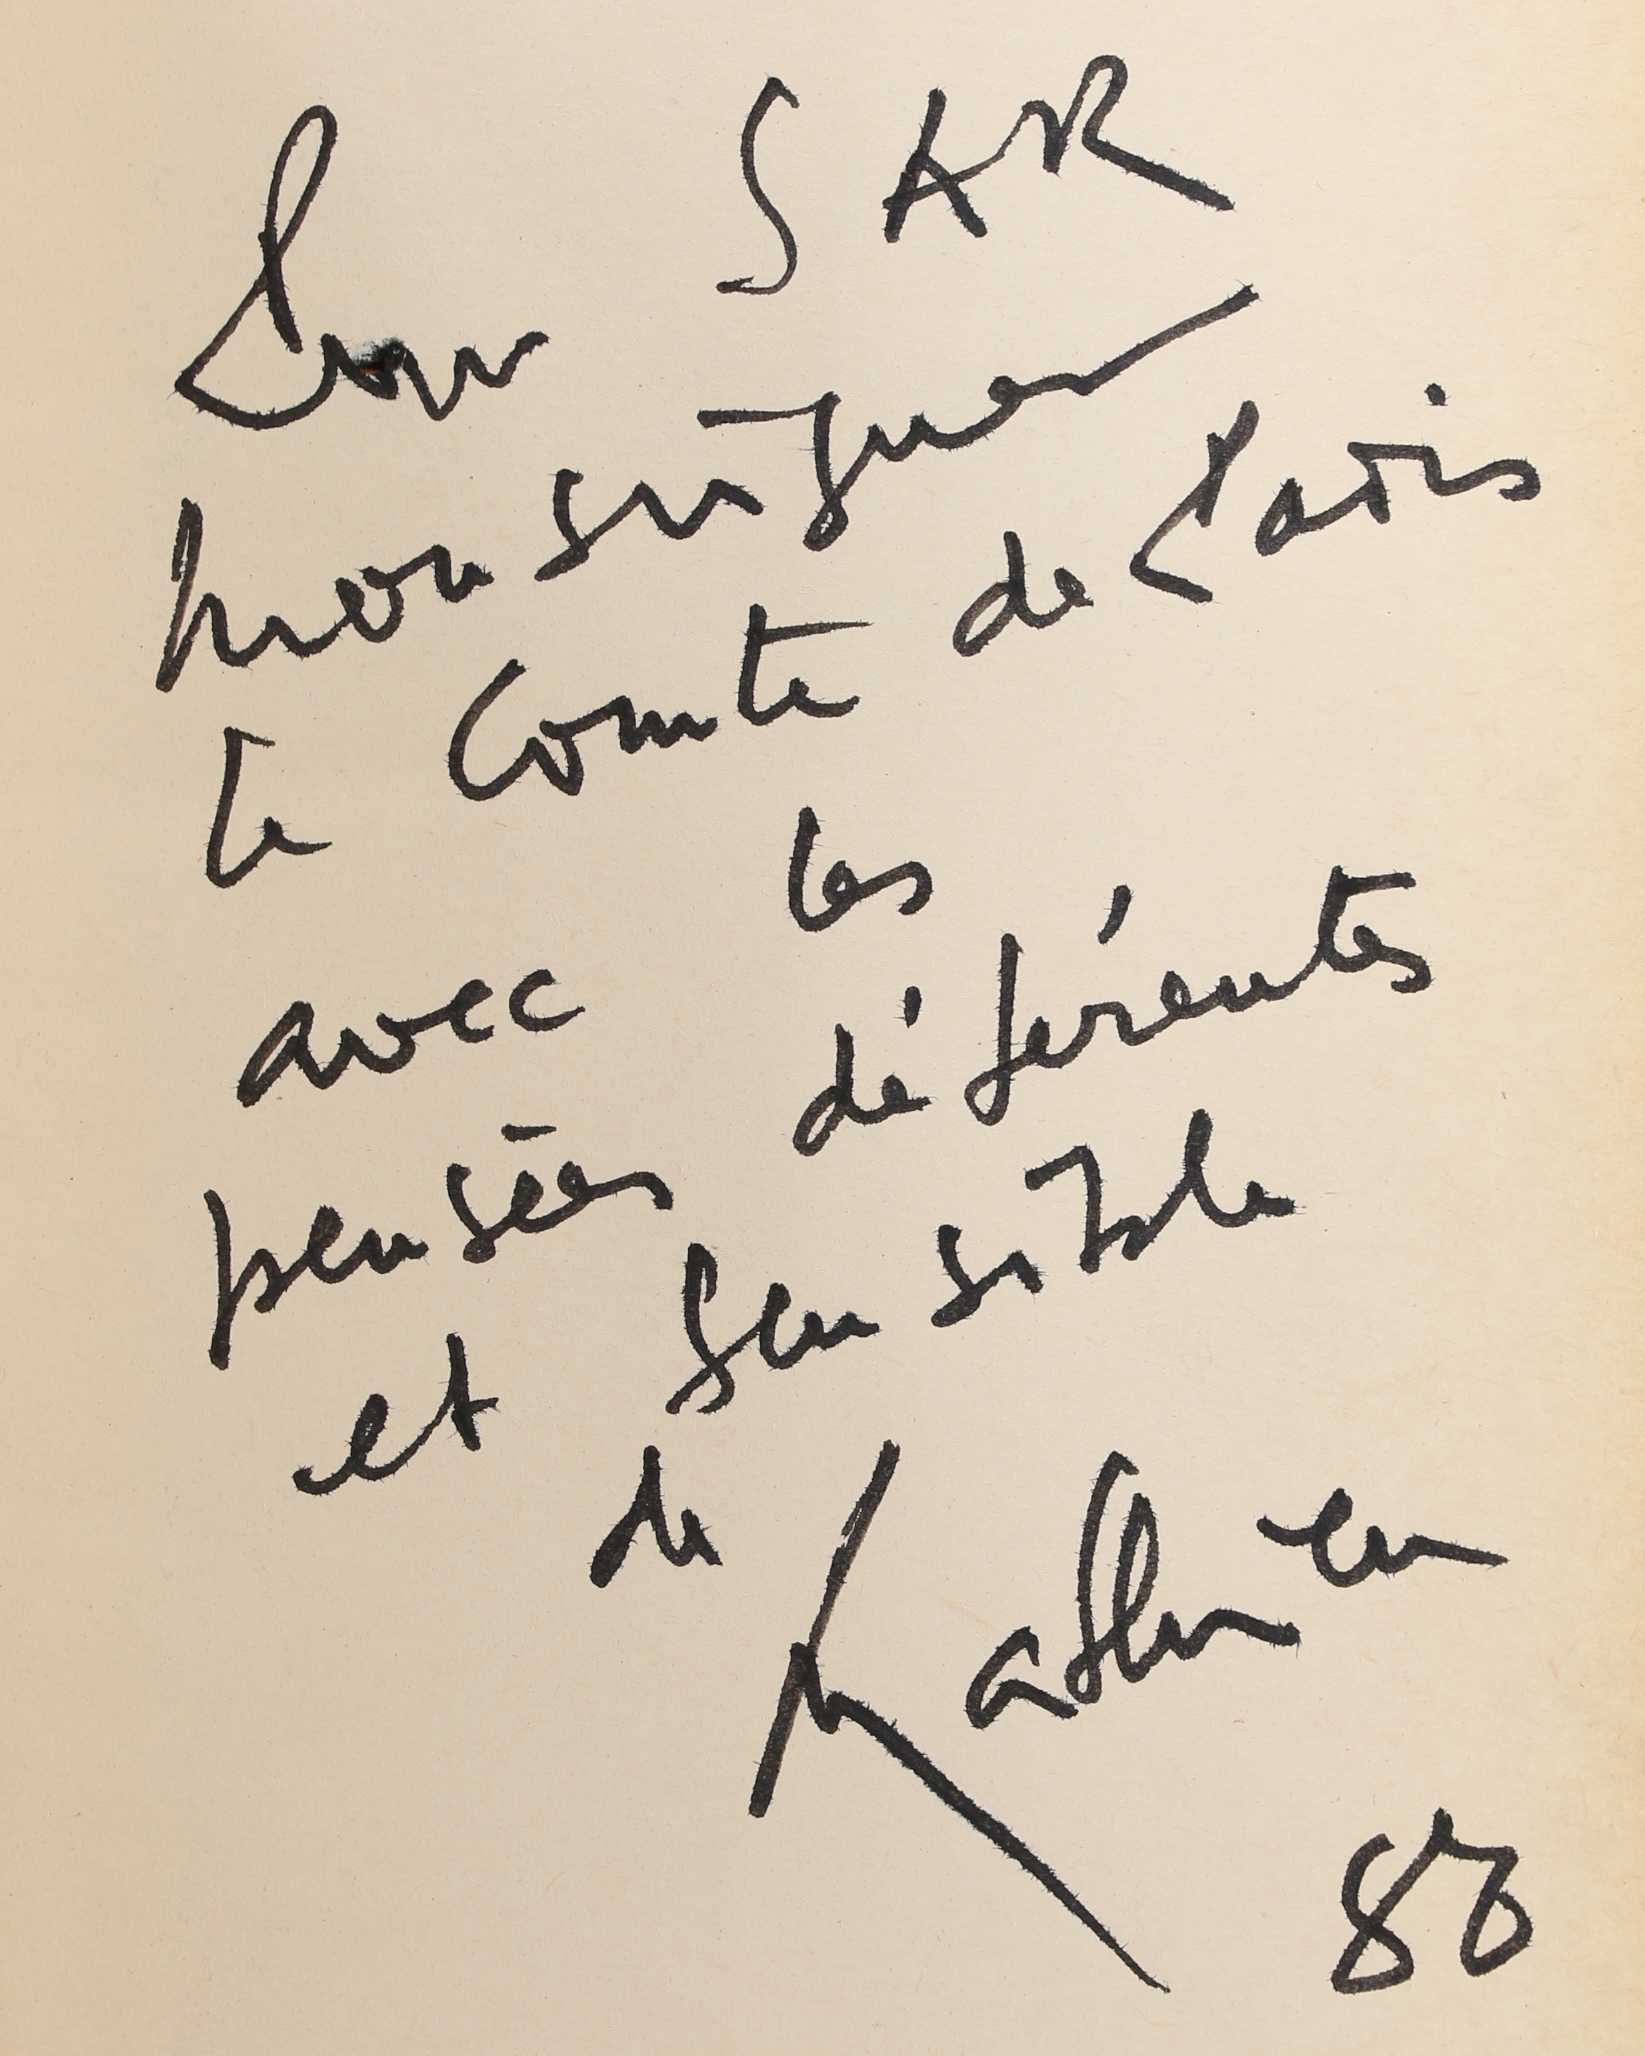 Pour SAR
Monseigneur
le Comte de Paris
avec les
pensées déférentes
et sensible
de Kathleen
86